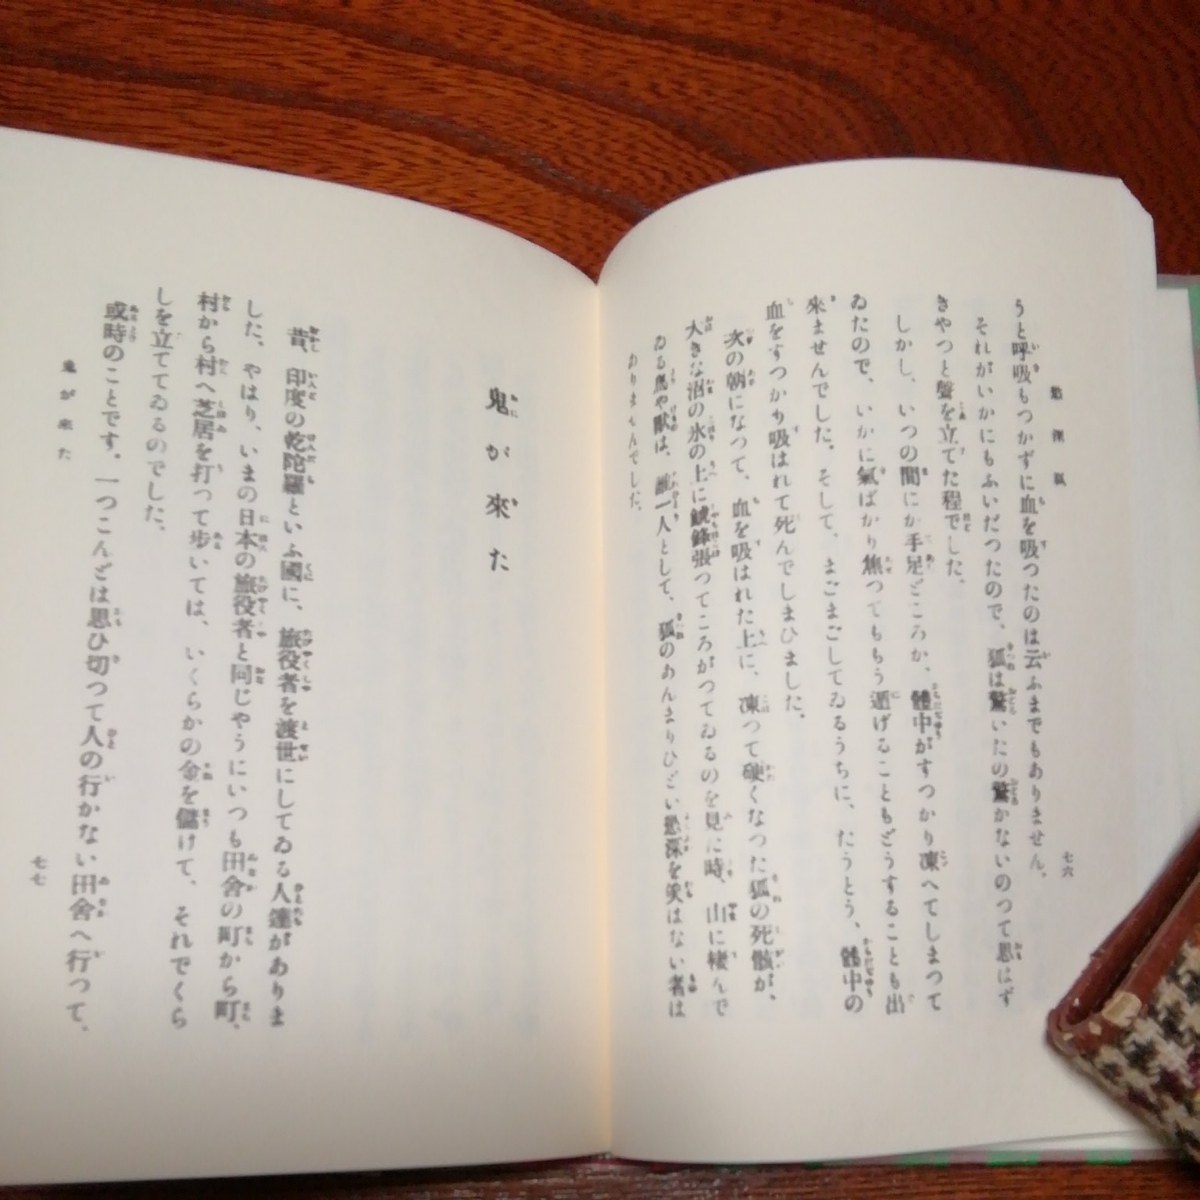 慾深狐
七六
うと呼吸もつかずに血を吸つたのは云ふまでもありません。
それがいかにもふいだつたので、狐は驚いたの驚かないのつて思はず
きやつと聲を立てた程でした。
しかし、いつの間にか手足どころか、體中がすつかり凍へてしまつて
ゐたので、いかに氣ばかり焦つてももう遁げることもどうすることも出
來ませんでした。そして、まごまごしてゐるうちに、たうとう、體中の
血をすつかり吸はれて死んでしまひました。
次の朝になつて、血を吸はれた上に、凍つて硬くなつた狐の死骸が、
大きな沼の氷の上に鯱鉾張つてころがつてゐるのを見た時、山に棲んで
ゐる鳥や獸は、誰一人として、狐のあんまりひどい慾深を笑はない者は
ありませんでした。
鬼が來た
昔、印度の乾陀羅といふ國に、旅役者を渡世にしてゐる人達がありま
した。やはり、いまの日本の旅役者と同じやうにいつも田舍の町から町、
村から村へ芝居を打つて歩いては、いくらかの金を儲けて、それでくら
しを立ててゐるのでした。
或時のことです。一つこんどは思ひ切つて人の行かない田舍へ行つて、
鬼が來た
七七